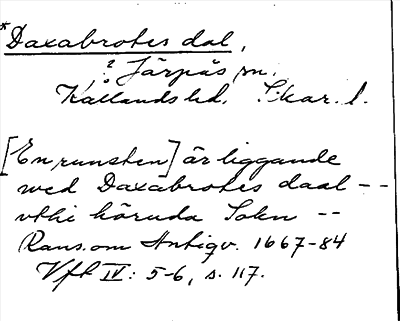 *Daxabrotes dal,
? Järpås sn.
Kållands hd. Skar. l.
[En runsten] är liggande
wed Daxabrotes daal --
vthi häruda Sokn --
Rans. om Antiqv. 1667-84
Vft IV: 5-6, s. 117.